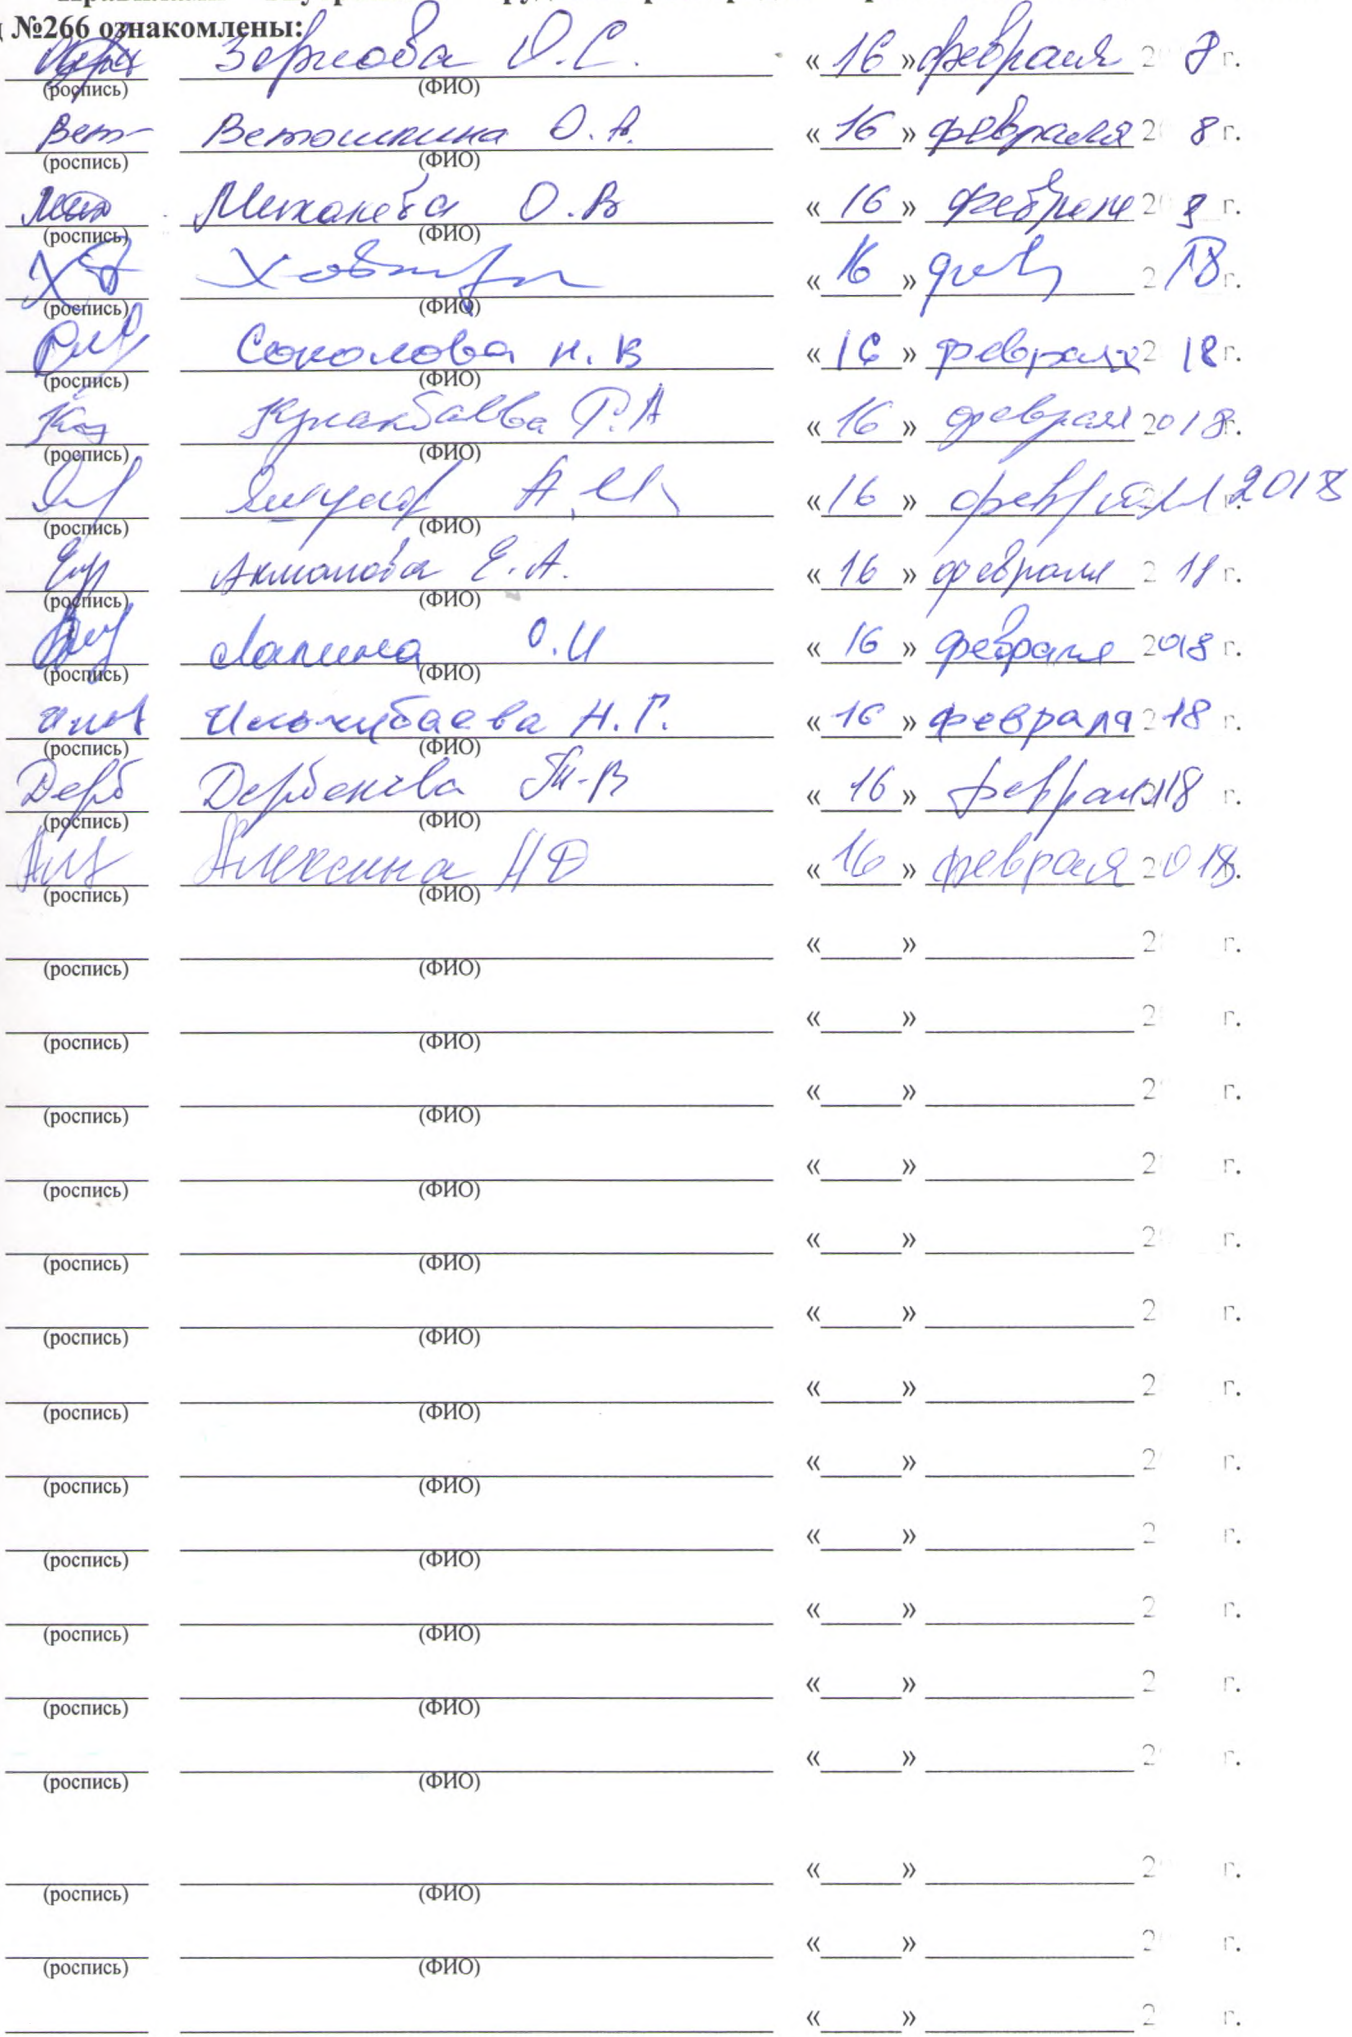 №266 ознакомлены:
Зернова О.С. « 16 » февраля 2 8 г.
(роспись) (ФИО)
Вет- Ветошкина О.А. « 16 » февраля 2 8 г.
(роспись) (ФИО)
О.В « 16 » 2 8 г.
(роспись) (ФИО)
« 16 » 2 18 г.
(роспись) (ФИО)
Соколова Н.В « 16 » февраля 2 18 г.
(роспись) (ФИО)
Кунакбаева Г.А « 16 » февраля 2018 г.
(роспись) (ФИО)
А. « 16 » февраля 2018
(роспись) (ФИО)
Акманова Е.А. « 16 » февраля 2 18 г.
(роспись) (ФИО)
Лапина О.И « 16 » февраля 2018 г.
(роспись) (ФИО)
Илькибаева Н.Г. « 16 » февраля 2 18 г.
(роспись) (ФИО)
Дерб Дербенева Т.В « 16 » февраля 18 г.
(роспись) (ФИО)
Алексина НФ « 16 » февраля 2018 г.
(роспись) (ФИО)
« » 2 г.
(роспись) (ФИО)
« » 2 г.
(роспись) (ФИО)
« » 2 г.
(роспись) (ФИО)
« » 2 г.
(роспись) (ФИО)
« » 2 г.
(роспись) (ФИО)
« » 2 г.
(роспись) (ФИО)
« » 2 г.
(роспись) (ФИО)
« » 2 г.
(роспись) (ФИО)
« » 2 г.
(роспись) (ФИО)
« » 2 г.
(роспись) (ФИО)
« » 2 г.
(роспись) (ФИО)
« » 2 г.
(роспись) (ФИО)
« » 2 г.
(роспись) (ФИО)
« » 2 г.
(роспись) (ФИО)
« » 2 г.